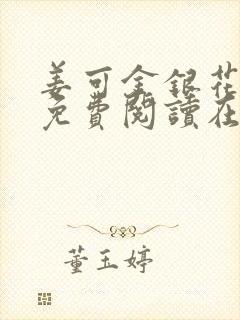 姜可金銀花
免費閱讀在
董玉婷